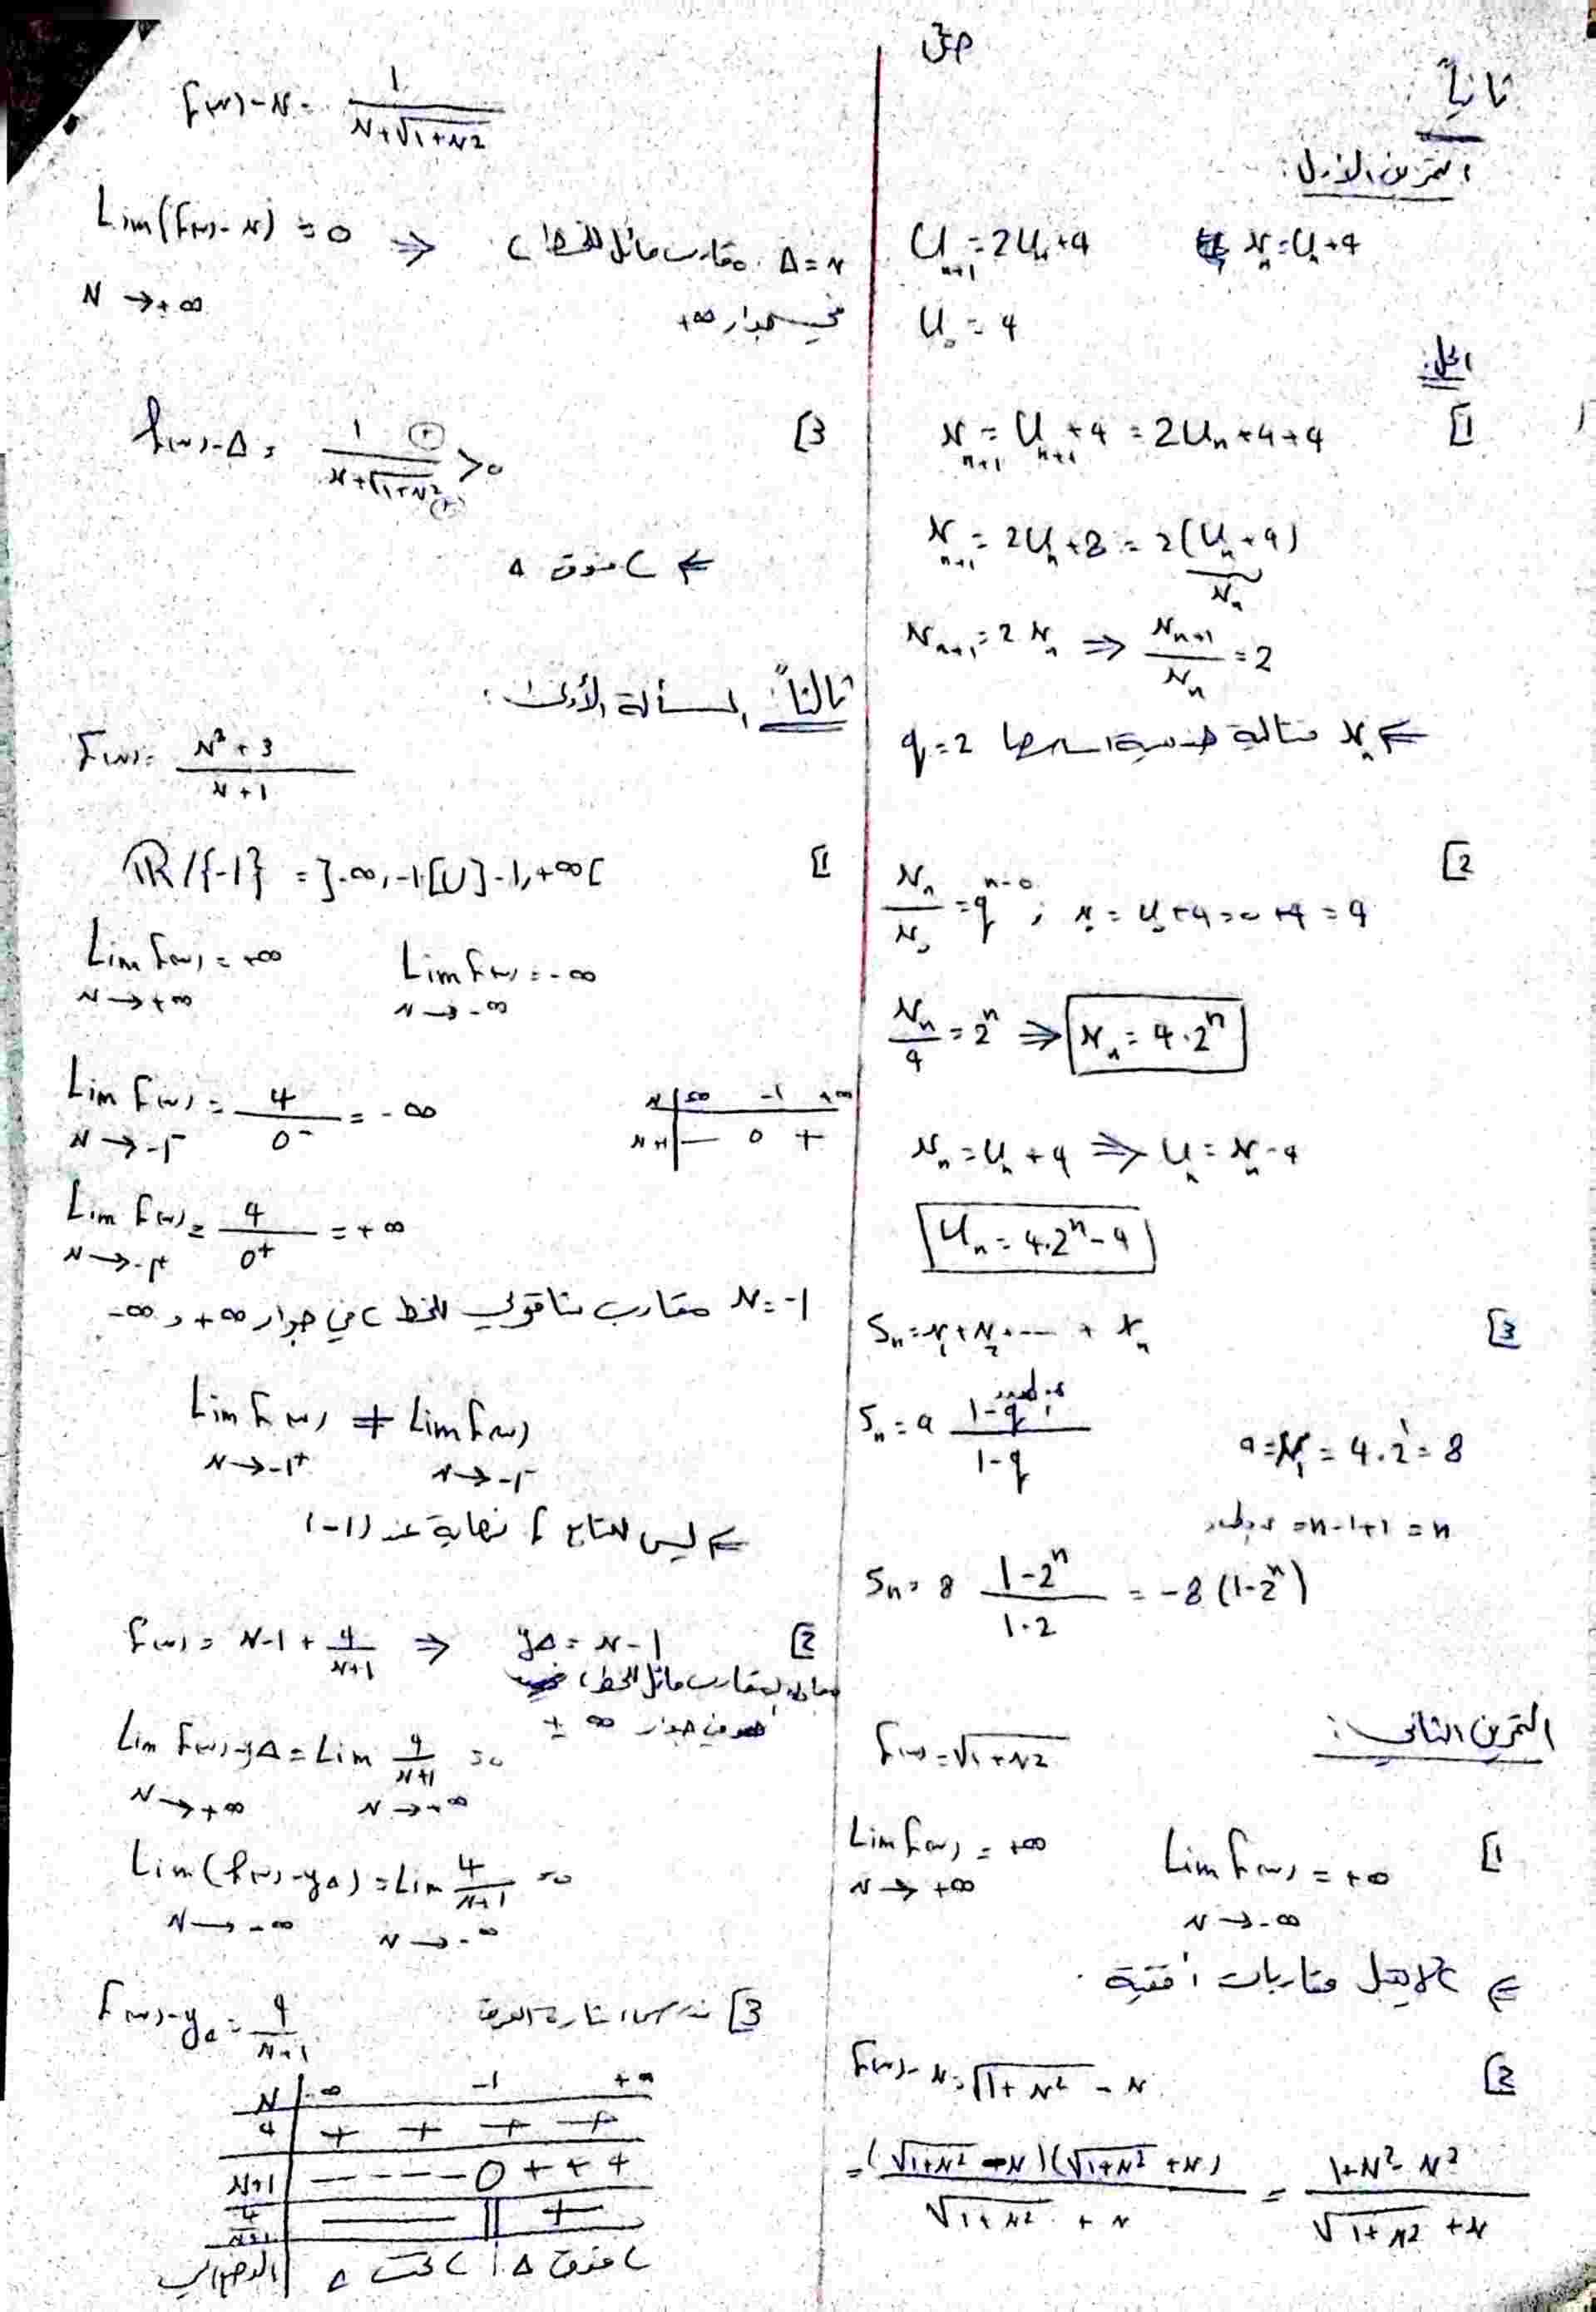 ثانياً
التمرين الأول:
U_{n+1} = 2U_n + 4    x_n = U_n + 4
U_0 = 4
الحل:
1] x_{n+1} = U_{n+1} + 4 = 2U_n + 4 + 4
x_{n+1} = 2U_n + 8 = 2(U_n + 4)
x_n
x_{n+1} = 2x_n ⇒ x_{n+1}/x_n = 2
⇐ x_n متتالية هندسية أساسها q = 2
2] x_n/x_0 = q^{n-0} ; x_0 = U_0 + 4 = 0 + 4 = 4
x_n/4 = 2^n ⇒ x_n = 4.2^n
x_n = U_n + 4 ⇒ U_n = x_n - 4
U_n = 4.2^n - 4
3] S_n = x_1 + x_2 + ---- + x_n
S_n = a (1 - q^{عدد})/(1 - q)    a = x_1 = 4.2^1 = 8
= n - 1 + 1 = n
S_n = 8 (1 - 2^n)/(1 - 2) = -8(1 - 2^n)
التمرين الثاني:
f(x) = √(1+x²)
1] Lim f(x) = +∞    Lim f(x) = +∞
x → +∞    x → -∞
⇐ C لا يقبل مقاربات أفقية.
2] f(x) - x = √(1+x²) - x
= (√(1+x²) - x)(√(1+x²) + x)/(√(1+x²) + x) = (1 + x² - x²)/(√(1+x²) + x)
f(x) - x = 1/(x + √(1+x²))
Lim(f(x) - x) = 0 ⇒ Δ = x مقارب مائل للخط C
x → +∞    في جوار +∞
3] f(x) - Δ = 1/(x + √(1+x²)) > 0
⇐ C فوق Δ
ثالثاً: المسألة الأولى:
f(x) = (x² + 3)/(x + 1)
1] ℝ/{-1} = ]-∞, -1[ U ]-1, +∞[
Lim f(x) = +∞    Lim f(x) = -∞
x → +∞    x → -∞
Lim f(x) = 4/0⁻ = -∞    x | -∞  -1  +∞
x → -1⁻    x+1 | —  0  +
Lim f(x) = 4/0⁺ = +∞
x → -1⁺
x = -1 مقارب شاقولي للخط C في جوار +∞ و -∞
Lim f(x) ≠ Lim f(x)
x → -1⁺    x → -1⁻
⇐ ليس للتابع f نهاية عند (-1)
2] f(x) = x - 1 + 4/(x+1) ⇒ y_Δ = x - 1
معادلة المقارب مائل للخط C
في جوار ±∞
Lim f(x) - y_Δ = Lim 4/(x+1) = 0
x → +∞    x → +∞
Lim(f(x) - y_Δ) = Lim 4/(x+1) = 0
x → -∞    x → -∞
3] ندرس إشارة الفرق    f(x) - y_Δ = 4/(x+1)
x | -∞  -1  +∞
4 | + + + +
x+1 | - - - - 0 + + +
4/(x+1) | — || +
الوضع النسبي | C تحت Δ | C فوق Δ